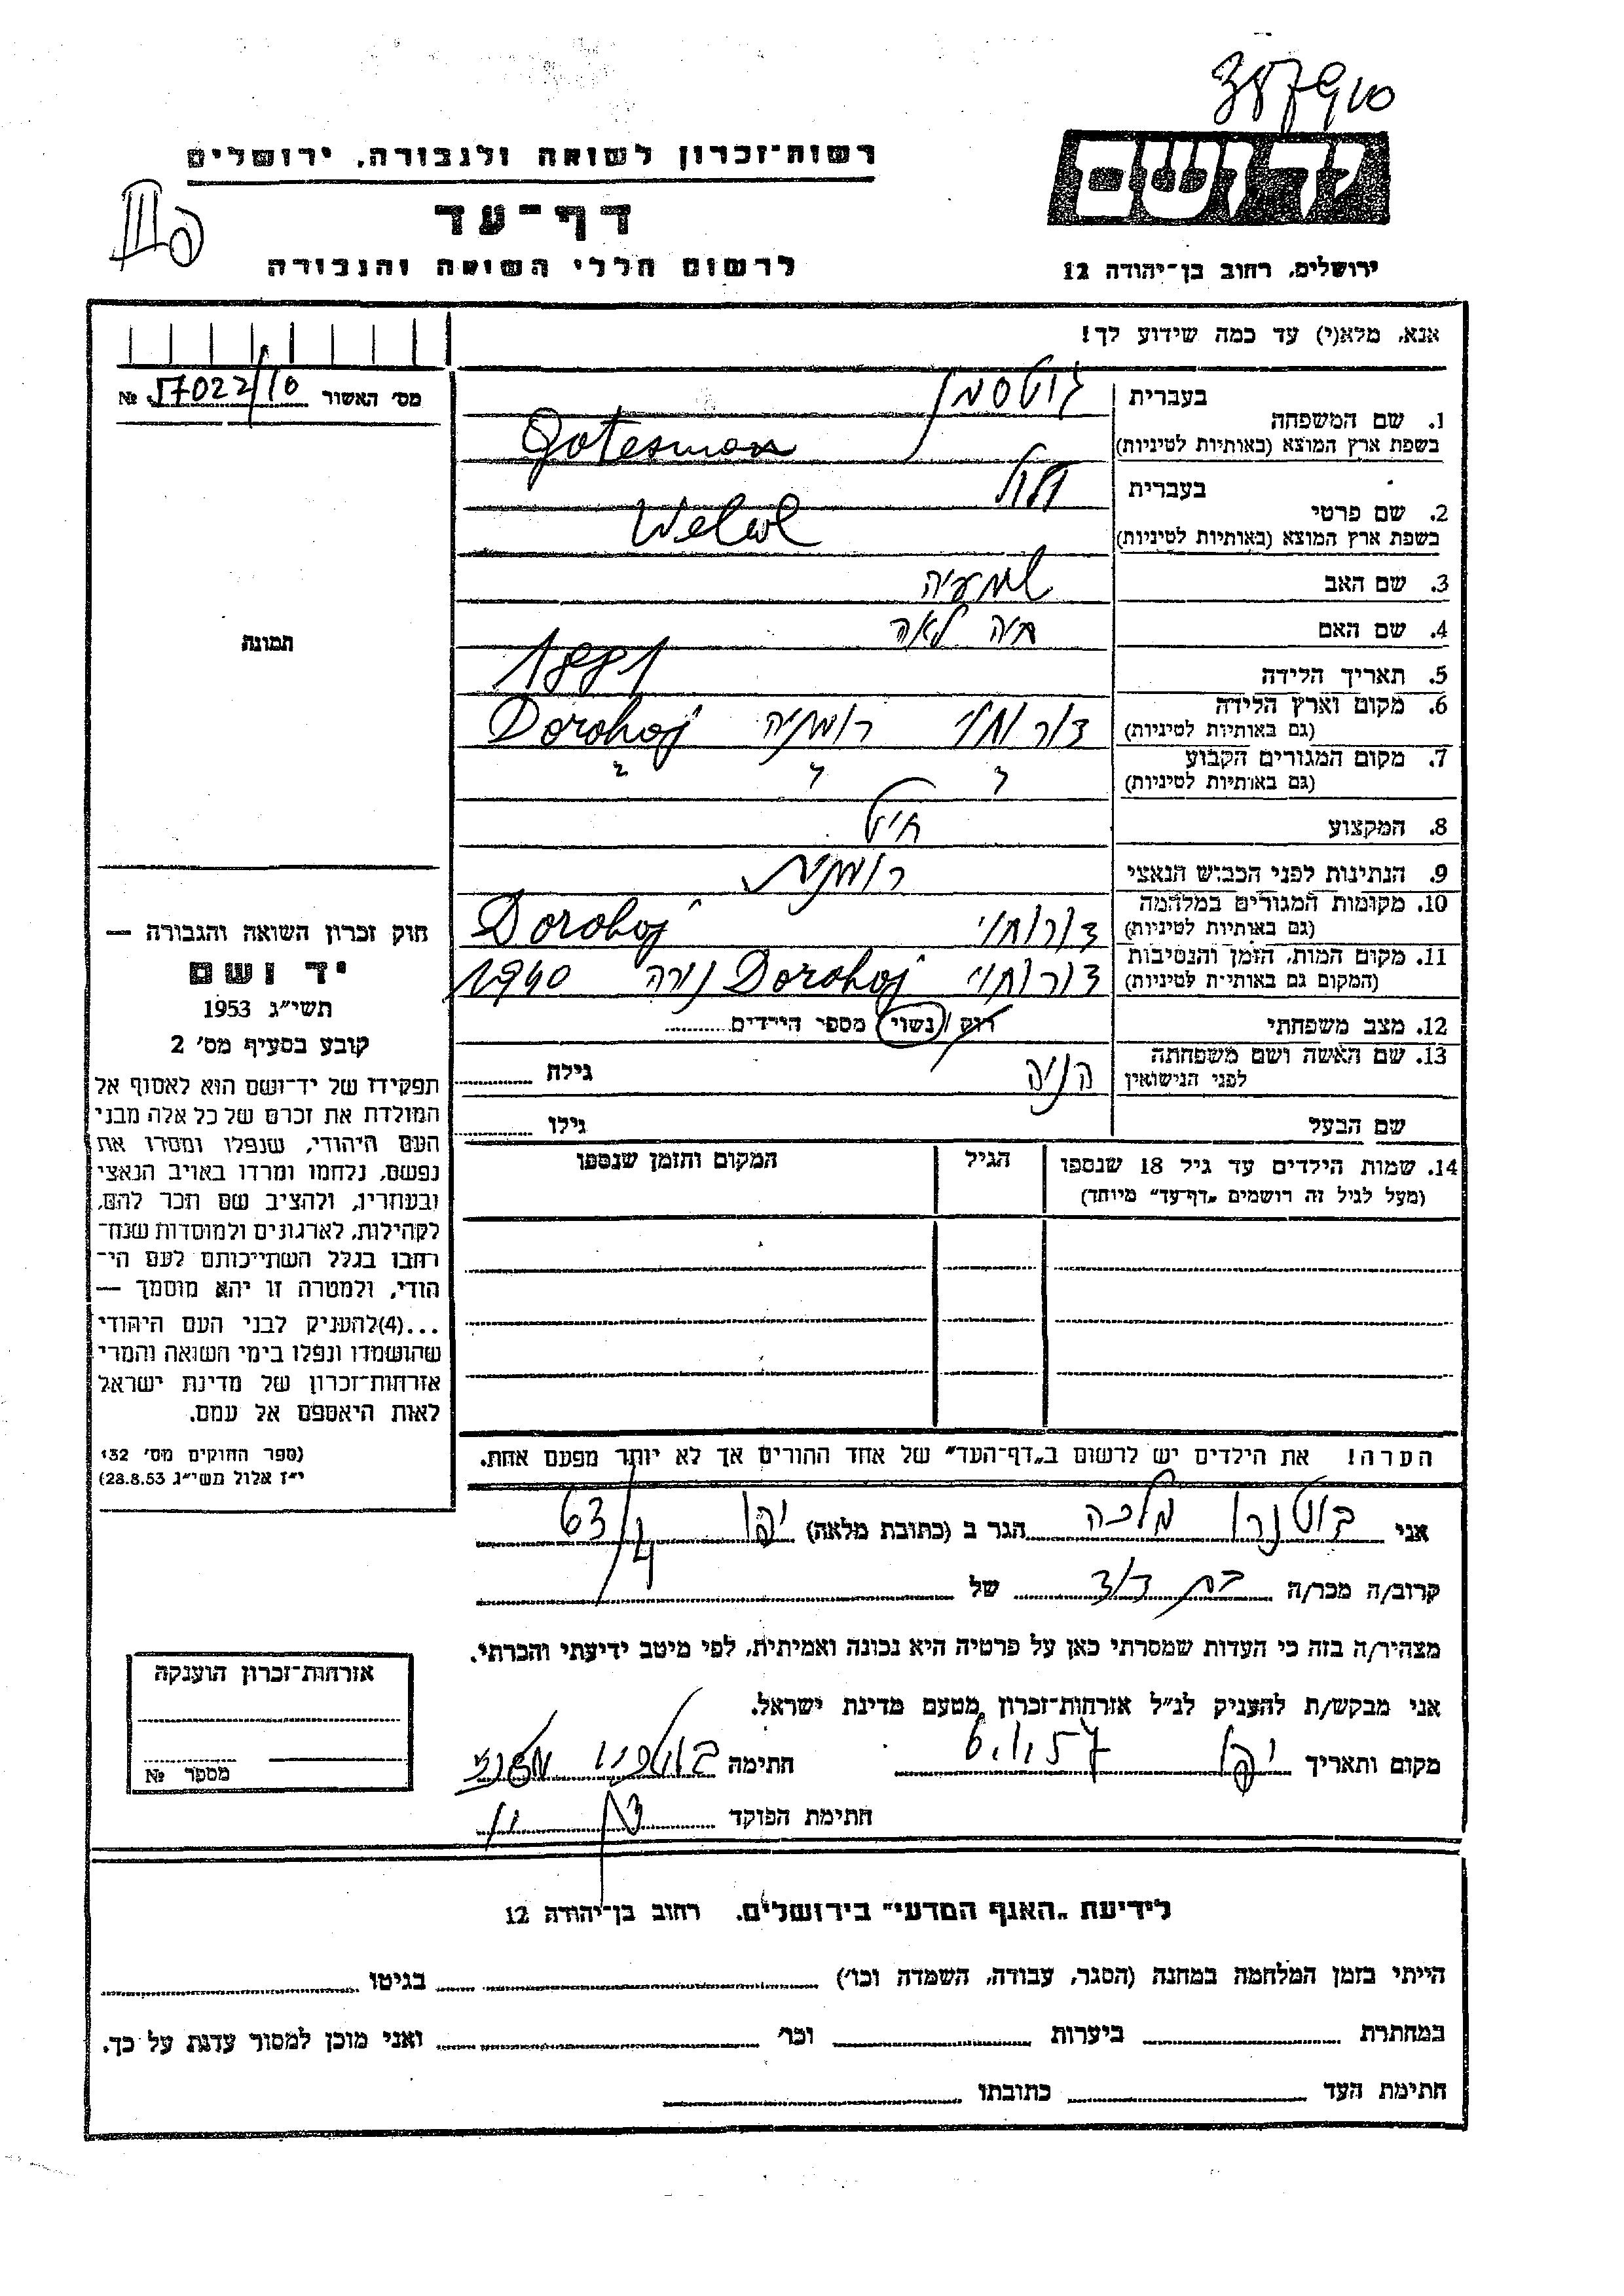 387910
רשות־זכרון לשואה ולגבורה, ירושלים
יד ושם
דף־עד
לרשום חללי השואה והגבורה
ירושלים, רחוב בן־יהודה 12
אנא, מלא(י) עד כמה שידוע לך!
מס׳ האשור № 17022/10
1. שם המשפחה בעברית גוטסמן
בשפת ארץ המוצא (באותיות לטיניות) Gotesman
2. שם פרטי בעברית
בשפת ארץ המוצא (באותיות לטיניות) Welwl
3. שם האב שמעיה
4. שם האם חיה לאה
תמונה
5. תאריך הלידה 1881
6. מקום וארץ הלידה
(גם באותיות לטיניות) דורוחוי רומניה Dorohoj
7. מקום המגורים הקבוע
(גם באותיות לטיניות)
8. המקצוע חיט
9. הנתינות לפני הכבוש הנאצי רומנית
10. מקומות המגורים במלחמה
(גם באותיות לטיניות) דורוחוי Dorohoj
11. מקום המות, הזמן והנסיבות
(המקום גם באותיות לטיניות) דורוחוי Dorohoj נורה 1940
12. מצב משפחתי רוק / נשוי מספר הילדים
13. שם האשה ושם משפחתה
לפני הנישואין הניה גילה
שם הבעל גילו
14. שמות הילדים עד גיל 18 שנספו
(מעל לגיל זה רושמים „דף־עד” מיוחד)
הגיל
המקום והזמן שנספו
הערה! את הילדים יש לרשום ב„דף־העד” של אחד ההורים אך לא יותר מפעם אחת.
חוק זכרון השואה והגבורה —
יד ושם
תשי״ג 1953
קובע בסעיף מס׳ 2
תפקידו של יד־ושם הוא לאסוף אל
המולדת את זכרם של כל אלה מבני
העם היהודי, שנפלו ומסרו את
נפשם, נלחמו ומרדו באויב הנאצי
ובעוזריו, ולהציב שם וזכר להם,
לקהילות, לארגונים ולמוסדות שנח־
רבו בגלל השתייכותם לעם הי־
הודי, ולמטרה זו יהא מוסמך —
...(4) להעניק לבני העם היהודי
שהושמדו ונפלו בימי השואה והמרי
אזרחות־זכרון של מדינת ישראל
לאות היאספם אל עמם.
(ספר החוקים מס׳ 132
י״ז אלול תשי״ג 28.8.53)
אני מלכה הגר ב (כתובת מלאה) יפו 63/4
קרוב/ה מכר/ה בת דוד של
מצהיר/ה בזה כי העדות שמסרתי כאן על פרטיה היא נכונה ואמיתית, לפי מיטב ידיעתי והכרתי.
אני מבקש/ת להעניק לנ״ל אזרחות־זכרון מטעם מדינת ישראל.
מקום ותאריך יפו 6.1.57 חתימה
חתימת הפוקד
אזרחות־זכרון הוענקה
מספר №
לידיעת „האגף המדעי” בירושלים. רחוב בן־יהודה 12
הייתי בזמן המלחמה במחנה (הסגר, עבודה, השמדה וכו׳) בגיטו
במחתרת ביערות וכו׳ ואני מוכן למסור עדות על כך.
חתימת העד כתובתו